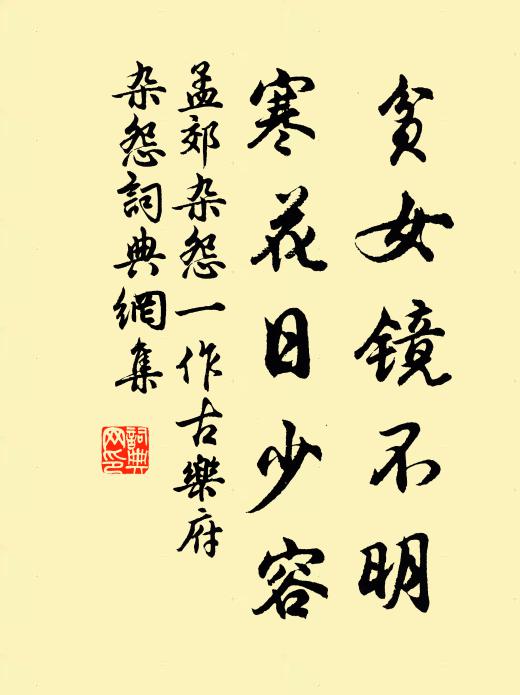 貧女镜不明
寒花日少容
孟郊杂怨一作古樂府
杂怨詞典網集
詞典
网印